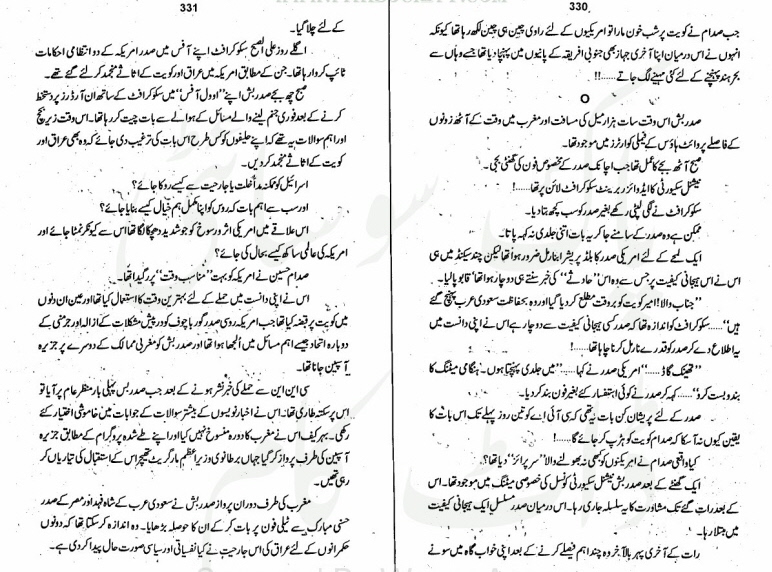 330
جب صدام نے کویت پر شب خون مارا تو امریکیوں کے لئے راوی چین ہی چین لکھ رہا تھا کیونکہ
انہوں نے اس درمیان اپنا آخری جہاز بھی جنوبی افریقہ کے پانیوں میں پہنچا دیا تھا جسے وہاں سے
بحر ہند پہنچنے کے لئے کئی مہینے لگ جاتے ......!!
O
صدر بش اس وقت سات ہزار میل کی مسافت اور مغرب میں وقت کے آٹھ زونوں
کے فاصلے پر وائٹ ہاؤس کے فیملی کوارٹرز میں موجود تھا۔
صبح آٹھ بجے کا عمل تھا جب اچانک صدر کے مخصوص فون کی گھنٹی بجی۔
نیشنل سیکورٹی کا ایڈوائزر برینٹ سکوکرافٹ لائن پر تھا......!
سکوکرافٹ نے لگی لپٹی رکھے بغیر صدر کو سب کچھ بتا دیا۔
ممکن ہے وہ صدر کے سامنے جا کر یہ بات اتنی جلدی نہ کہہ پاتا۔
ایک لمحے کے لئے امریکی صدر کا بلڈ پریشر ابنارمل ضرور ہوا تھا لیکن چند سیکنڈ میں ہی
اس نے اس ہیجانی کیفیت پر جس سے وہ اس ”حادثے“ کی خبر سنتے ہی دوچار ہوا تھا‘ قابو پا لیا۔
”جناب والا! امیر کویت کو بروقت مطلع کر دیا گیا اور وہ بحفاظت سعودی عرب پہنچ گئے
ہیں“...... سکوکرافٹ کو اندازہ تھا کہ صدر کسی ہیجانی کیفیت سے دوچار ہے اس نے اپنی دانست میں
یہ اطلاع دے کر صدر کو قدرے نارمل کرنا چاہا تھا......!
”تھینک گاڈ“...... امریکی صدر نے کہا...... ”میں جلدی پہنچتا ہوں۔ ہنگامی میٹنگ کا
بندوبست کرو“...... کہہ کر صدر نے کوئی استفسار کئے بغیر فون بند کر دیا۔
صدر کے لئے پریشان کن بات یہ تھی کہ سی آئی اے کو تین روز پہلے تک اس بات کا
یقین کیوں نہ آ سکا کہ صدام کویت کو ہڑپ کر جائے گا......!
کیا واقعی صدام نے امریکنوں کو کبھی نہ بھولنے والا ”سرپرائز“ دیا تھا؟۔
ایک گھنٹے کے بعد صدر بش نیشنل سیکیورٹی کونسل کی خصوصی میٹنگ میں موجود تھا۔ اس
کے بعد رات گئے تک مشاورت کا یہ سلسلہ جاری رہا۔ اس درمیان صدر مسلسل ایک ہیجانی کیفیت
میں مبتلا رہا۔
رات کے آخری پہر بالآخر وہ چند اہم فیصلے کرنے کے بعد اپنی خواب گاہ میں سونے
331
کے لئے چلا گیا۔
اگلے روز علی الصبح سکوکرافٹ اپنے آفس میں صدر امریکہ کے دو انتظامی احکامات
ٹائپ کروا رہا تھا۔ جن کے مطابق امریکہ میں عراق اور کویت کے اثاثے منجمد کر لئے گئے تھے۔
صبح چھ بجے صدر بش اپنے ”اوول آفس“ میں سکوکرافٹ کے ساتھ ان آرڈرز پر دستخط
کرنے کے بعد فوری جنم لینے والے مسائل کے حوالے سے بات چیت کر رہا تھا۔ اس وقت زیر بحث
اور اہم سوالات یہ تھے کہ اپنے حلیفوں کو کس طرح اس بات کی ترغیب دی جائے کہ وہ بھی عراق اور
کویت کے اثاثے منجمد کر دیں۔
اسرائیل کو ممکنہ مداخلت یا جارحیت سے کیسے روکا جائے؟
اور سب سے اہم بات کہ روس کو اپنا مکمل ہم خیال کیسے بنایا جائے؟
اس علاقے میں امریکی اثر و رسوخ کو جو شدید دھچکا لگا تھا اس سے کیونکر نمٹا جائے اور
امریکہ کی عالمی ساکھ کیسے بحال کی جائے؟
صدام حسین نے امریکہ کو بہت ”مناسب وقت“ پر رگیدا تھا۔
اس نے اپنی دانست میں حملے کے لئے بہترین وقت کا استعمال کیا تھا اور عین ان دنوں
میں کویت پر قبضہ کیا تھا جب امریکہ روسی صدر گورباچوف کو درپیش مشکلات کے ازالہ اور جرمنی کے
دوبارہ اتحاد جیسے اہم مسائل میں الجھا ہوا تھا اور صدر بش کو مغربی ممالک کے دوسرے پر جزیرہ
آسپین جانا تھا۔
سی این این سے حملے کی خبر نشر ہونے کے بعد جب صدر بش پہلی بار منظر عام پر آیا تو
اس پر سکتہ طاری تھا۔ اس نے اخبار نویسوں کے بیشتر سوالات کے جوابات میں خاموشی اختیار کئے
رکھی۔ بہر کیف اس نے مغرب کا دورہ منسوخ نہیں کیا اور اپنے طے شدہ پروگرام کے مطابق جزیرہ
آسپین کی طرف پرواز کر گیا جہاں برطانوی وزیر اعظم مارگریٹ تھیچر اس کے استقبال کی تیاریاں کر
رہی تھیں۔
مغرب کی طرف دوران پرواز صدر بش نے سعودی عرب کے شاہ فہد اور مصر کے صدر
حسنی مبارک سے ٹیلی فون پر بات کر کے ان کا حوصلہ بڑھایا۔ وہ اندازہ کر سکتا تھا کہ دونوں
حکمرانوں کے لئے عراق کی اس جارحیت نے کیا نفسیاتی اور سیاسی صورت حال پیدا کر دی ہے۔